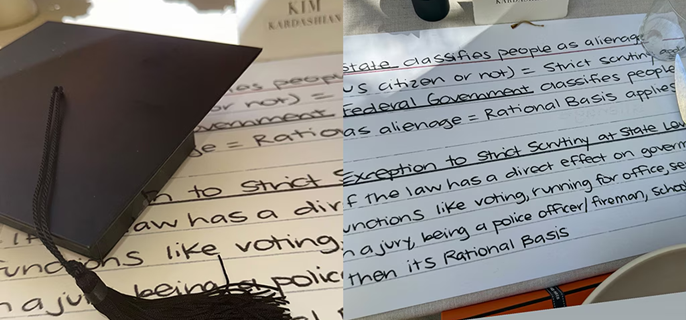 KIM
KARDASHIAN
ies people
or not) =
vernment
ge = Ratio
n to Strict S
aw has a dir
functions like voting,
n a jury being a polic
KARDASHIAN
State classifies people as alienage
US citizen or not) = Strict Scrutiny
Federal Government classifies people
as alienage = Rational Basis applies
Exception to Strict Scrtiny at State Lev
If the law has a direct effect on govern
functions like voting, running for office, se
n a jury, being a police officer/fireman, school
then its Rational Basis